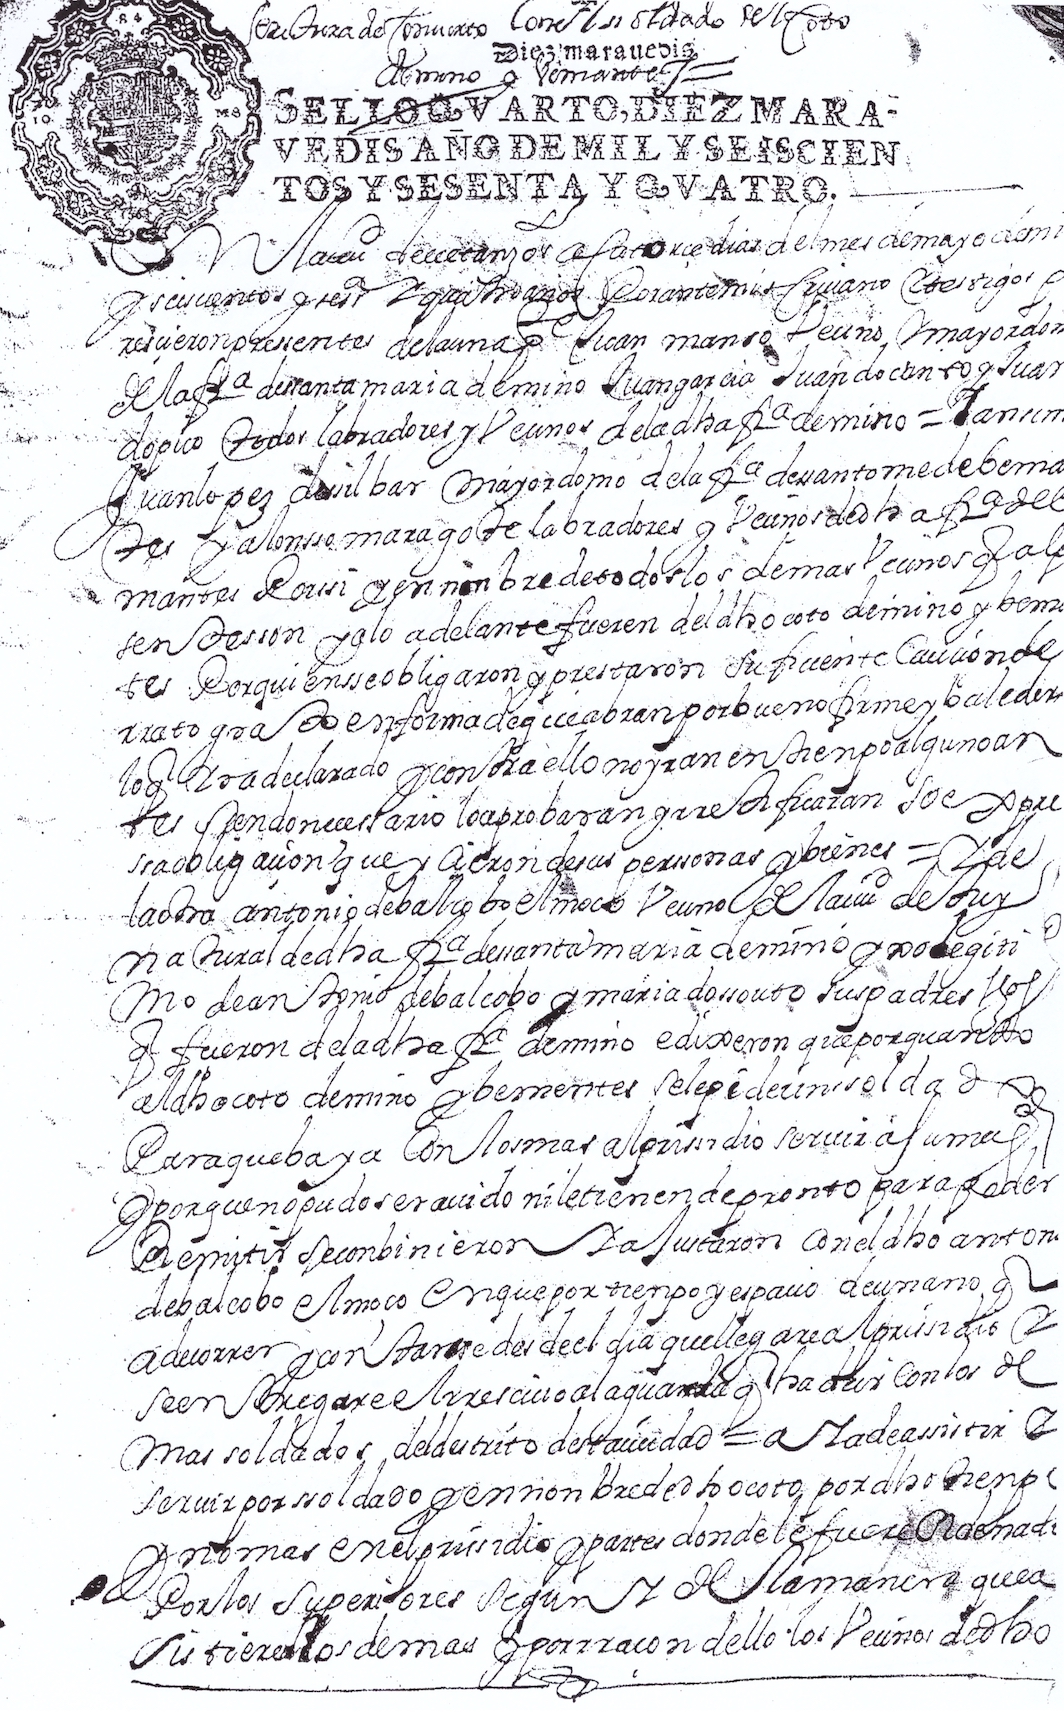 Scriptura de Conçierto Con el soldado del Coto
Diez maravedis
de mino y Vemantes
SELLO QVARTO, DIEZ MARA-
VEDIS AÑO DE MIL Y SEISCIEN
TOS Y SESENTA Y QVATRO.
En la ciud de vetanços a catorce dias del mes de mayo de mi
y seiscientos y ses.ta y quatro años Por ante mi scriuano e testigos p
resieron presentes de la una p.e Juan manso Veçino y mayordom
de la fra de santa maria de mino Juan garcia Juan do canto y Juan
do pico todos labradores y Veçinos de la dha fra de mino =
Juan lopez de silbar mayordomo de la fra de santome de bema
tes y alonsso marago de labradores y Veçinos de dha fra de be
mantes Por si y en nonbre de todos los demas Veçinos q al p
sen de sson y a lo adelante fueren del dho coto de mino y bema
tes Por quiensse obligaron y prestaron suficiente Cauçion de
rrato grato en forma de que abran por bueno firme y baleder
lo q yra declarado y contra ello no yran en tienpo alguno an
tes siendo necessario lo aprobaran y rretificaran so expre
ssa obligaçion que yçieron de sus perssonas y bienes = Y de
la otra antonio de balcobo el moço Veçino de la ciud de tuy
natural de dha fra de santa maria de mino yxo legiti
mo de antonio de balcobo y maria do ssouto sus padres Vos
q fueron de la dha fra de mino e dixeron que por quanto
al dho coto de mino y bementes se le pide un ssoldado
Para que baya Con los mas al prissidio seruir a su mag
y porque no pudo ser auido ni le tienen de pronto para poder
Remitir se conbinieron y ajustaron con el dho anton
de balcobo el moço En que por tienpo y espaçio de un ano q
a de correr y contarse desde el dia que llegare al prissidio y
se entregare el rresçiuo a la guarda q ha de ir con los de
mas soldados del destrito desta çiudad = a y a de assistir y
seruir por ssoldado y en nonbre de dho coto por dho tienp
y no mas en el prissidio y partes donde le fuere ordenad
Por los superiores segun y de la manera que a
sistieren los demas y por rraçon dello los Veçinos de dho